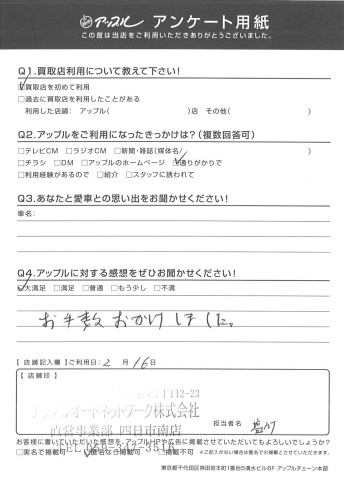 アップル アンケート用紙
この度は当店をご利用いただきありがとうございました。
Q1.買取店利用について教えて下さい!
☑買取店を初めて利用
□過去に買取店を利用したことがある
利用した店舗:アップル( )店 その他( )
Q2.アップルをご利用になったきっかけは?(複数回答可)
□テレビCM □ラジオCM □新聞・雑誌(媒体名/ )
□チラシ □DM □アップルのホームページ ☑通りがかりで
□利用経験があるので □紹介 □スタッフに誘われて
Q3.あなたと愛車との思い出をお聞かせください!
車名:
Q4.アップルに対する感想をぜひお聞かせください!
☑大満足 □満足 □普通 □もう少し □不満
お手数おかけしました。
【店舗記入欄】ご利用日:2月16日
【店舗印】
112-23
アップルオートネットワーク株式会社
直営事業部 四日市南店
059-347-3516
担当者名
お客様に書いていただいた感想を、アップルHPや広告に掲載させていただいてもよろしいでしょうか?
□実名で掲載可 ☑匿名なら掲載可 □掲載不可 ※ご記入がない場合は匿名での掲載とさせていただきます。
東京都千代田区神田岩本町1番地5清水ビル6F アップルチェーン本部